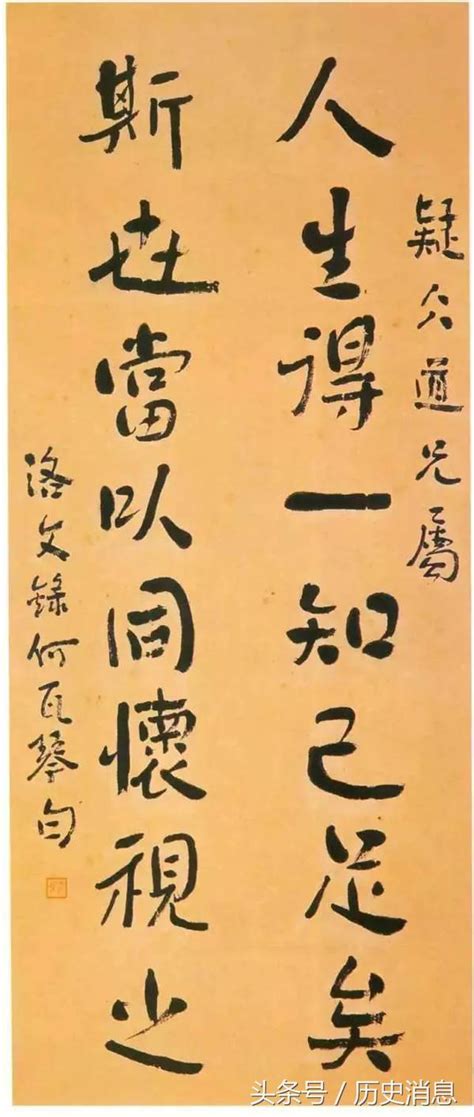 疑仌道兄屬
人生得一知己足矣
斯世當以同懷視之
洛文錄何瓦琴句
头条号 / 历史消息